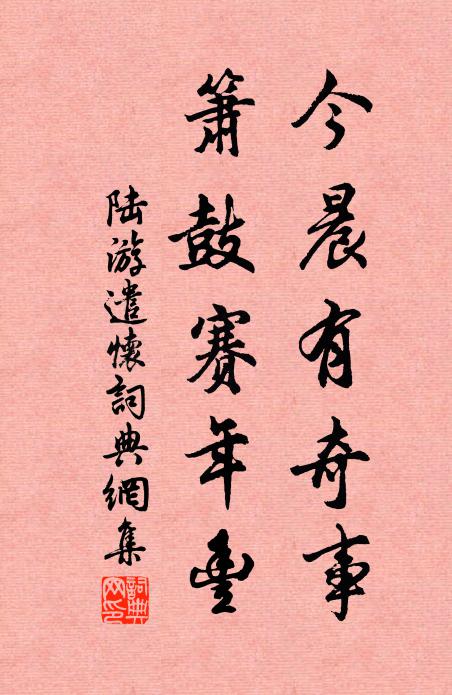 今晨有奇事
簫鼓賽年豐
陆游遣懷詞典網集
詞典网印